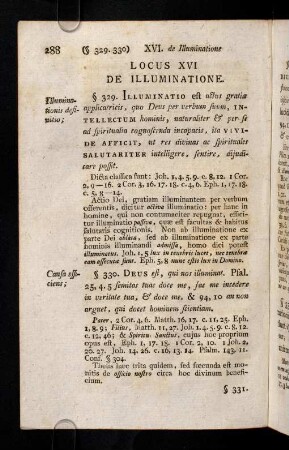 288 (§ 329. 330) XVI. de Illuminatione
LOCUS XVI
DE ILLUMINATIONE.
Illumina-
tionis defi-
nitio;
§ 329. ILLUMINATIO est actus gratiae
applicatricis, quo Deus per verbum suum, IN-
TELLECTUM hominis, naturaliter & per se
ad spiritualia cognoscenda incapacis, ita VIVI-
DE AFFICIT, ut res divinas ac spirituales
SALUTARITER intelligere, sentire, dijudi-
care possit.
Dicta classica sunt: Joh. 1, 4. 5. 9. c. 8, 12. 1 Cor.
2, 9—16. 2 Cor. 3, 16. 17. 18. c. 4, 6. Eph. 1, 17. 18.
c. 5, 8—14.
Actio Dei, gratiam illuminantem per verbum
offerentis, dicitur activa illuminatio: per hanc in
homine, qui non contumaciter repugnat, effici-
tur illuminatio passiva, quae est facultas & habitus
salutaris cognitionis. Non ab illuminatione ex
parte Dei oblata, sed ab illuminatione ex parte
hominis illuminandi admissa, homo dici potest
illuminatus. Joh. 1, 5 lux in tenebris lucet, nec tenebrae
eam assecutae sunt. Eph. 5, 8 nunc estis lux in Domino.
Causa effi-
ciens;
§ 330. DEUS est, qui nos illuminat. Psal.
25, 4. 5 semitas tuas doce me, fac me insedere
in veritate tua, & doce me, & 94, 10 an non
arguet, qui docet hominem scientiam.
Pater, 2 Cor. 4, 6. Matth. 16, 17. c. 11, 25. Eph.
1, 8. 9: Filius, Matth. 11, 27. Joh. 1, 4. 5. 9. c. 8, 12.
c. 12, 46; & Spiritus Sanctus, cujus hoc proprium
opus est, Eph. 1, 17. 18. 1 Cor. 2, 10. 1 Joh. 2,
20. 27. Joh. 14, 26. c. 16, 13. 14. Psalm. 143, 11.
Conf. § 304.
Thesis haec trita quidem, sed fecunda est mo-
nitis de officio nostro circa hoc divinum benefi-
cium.
§ 331.